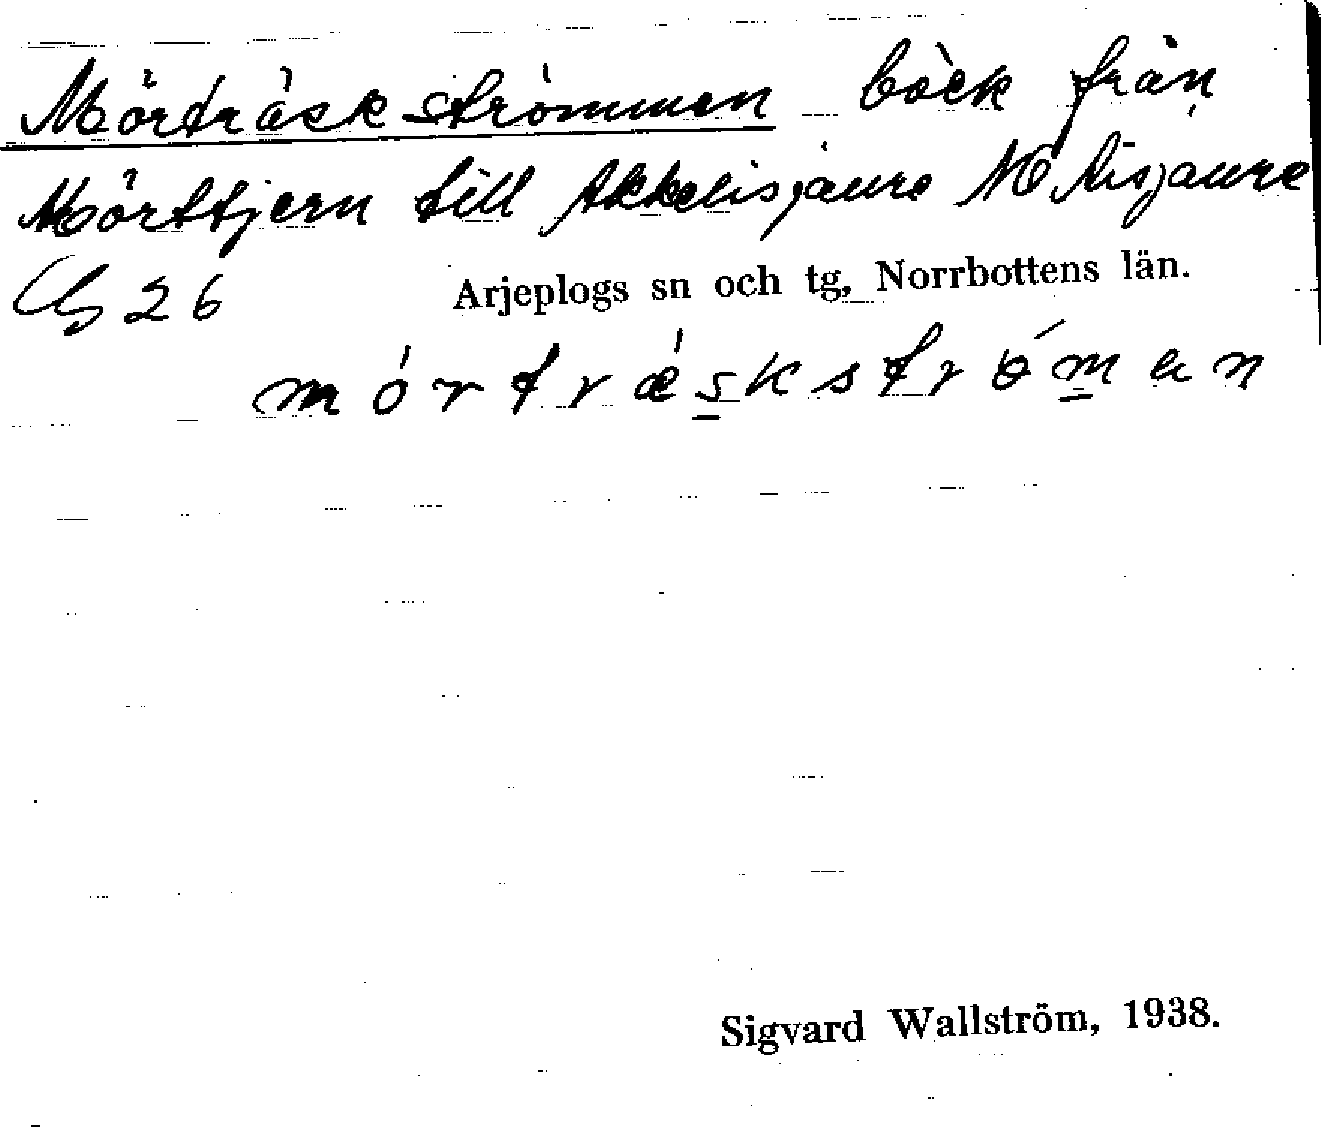 Mörträskströmmen bäck från
Mörttjern till Akkelisjaure NO Aisjaure
G 26
Arjeplogs sn och tg, Norrbottens län.
mórtrǽskstrǿmen
Sigvard Wallström, 1938.